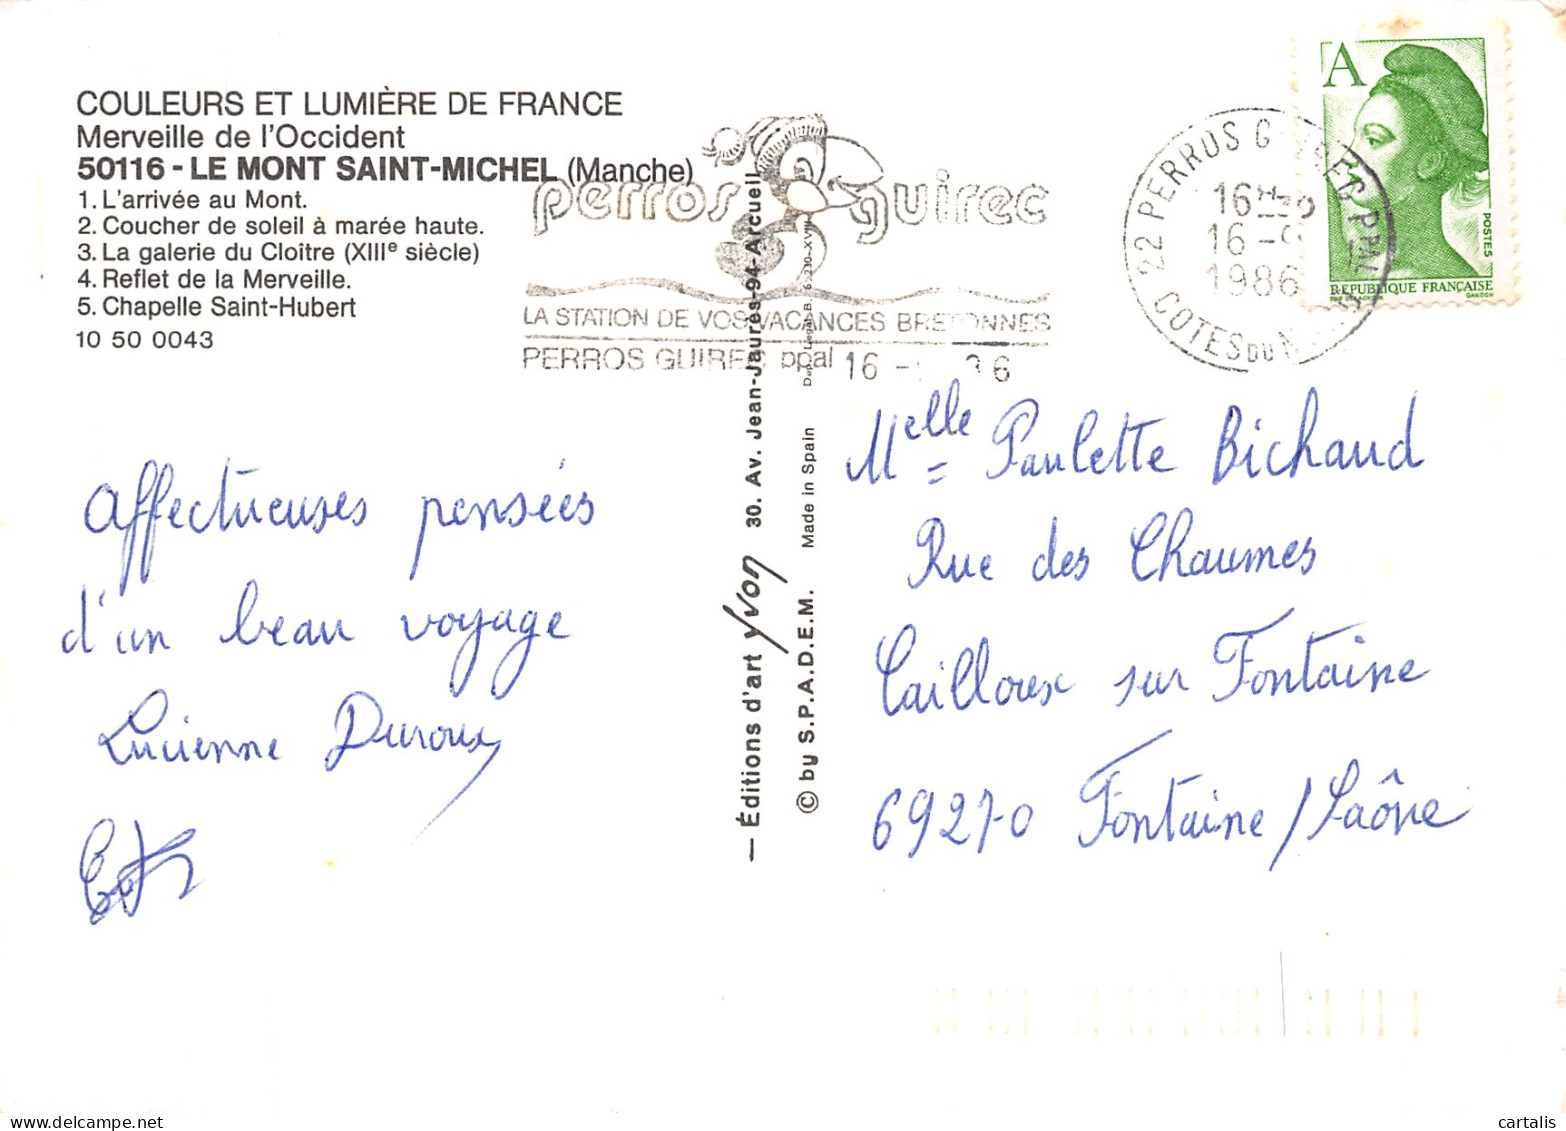 COULEURS ET LUMIÈRE DE FRANCE
Merveille de l'Occident
50116 - LE MONT SAINT-MICHEL (Manche)
1. L'arrivée au Mont.
2. Coucher de soleil à marée haute.
3. La galerie du Cloître (XIIIe siècle)
4. Reflet de la Merveille.
5. Chapelle Saint-Hubert
10 50 0043
perros guirec
LA STATION DE VOS VACANCES BRETONNES
PERROS GUIREC ppal 16 -
22 PERROS GUIREC PPAL
16 H
16 - 9
1986
COTES DU NORD
A
POSTES
REPUBLIQUE FRANÇAISE
GANDON
Affectueuses pensées
d'un beau voyage
Lucienne Duroux
— Éditions d'art yvon 30. Av. Jean-Jaurès-94-Arcueil
© by S.P.A.D.E.M. Made in Spain Dep. Legal B.
Melle Paulette Bichaud
Rue des Chaumes
Cailloux sur Fontaine
69270 Fontaine / Saône
cartalis